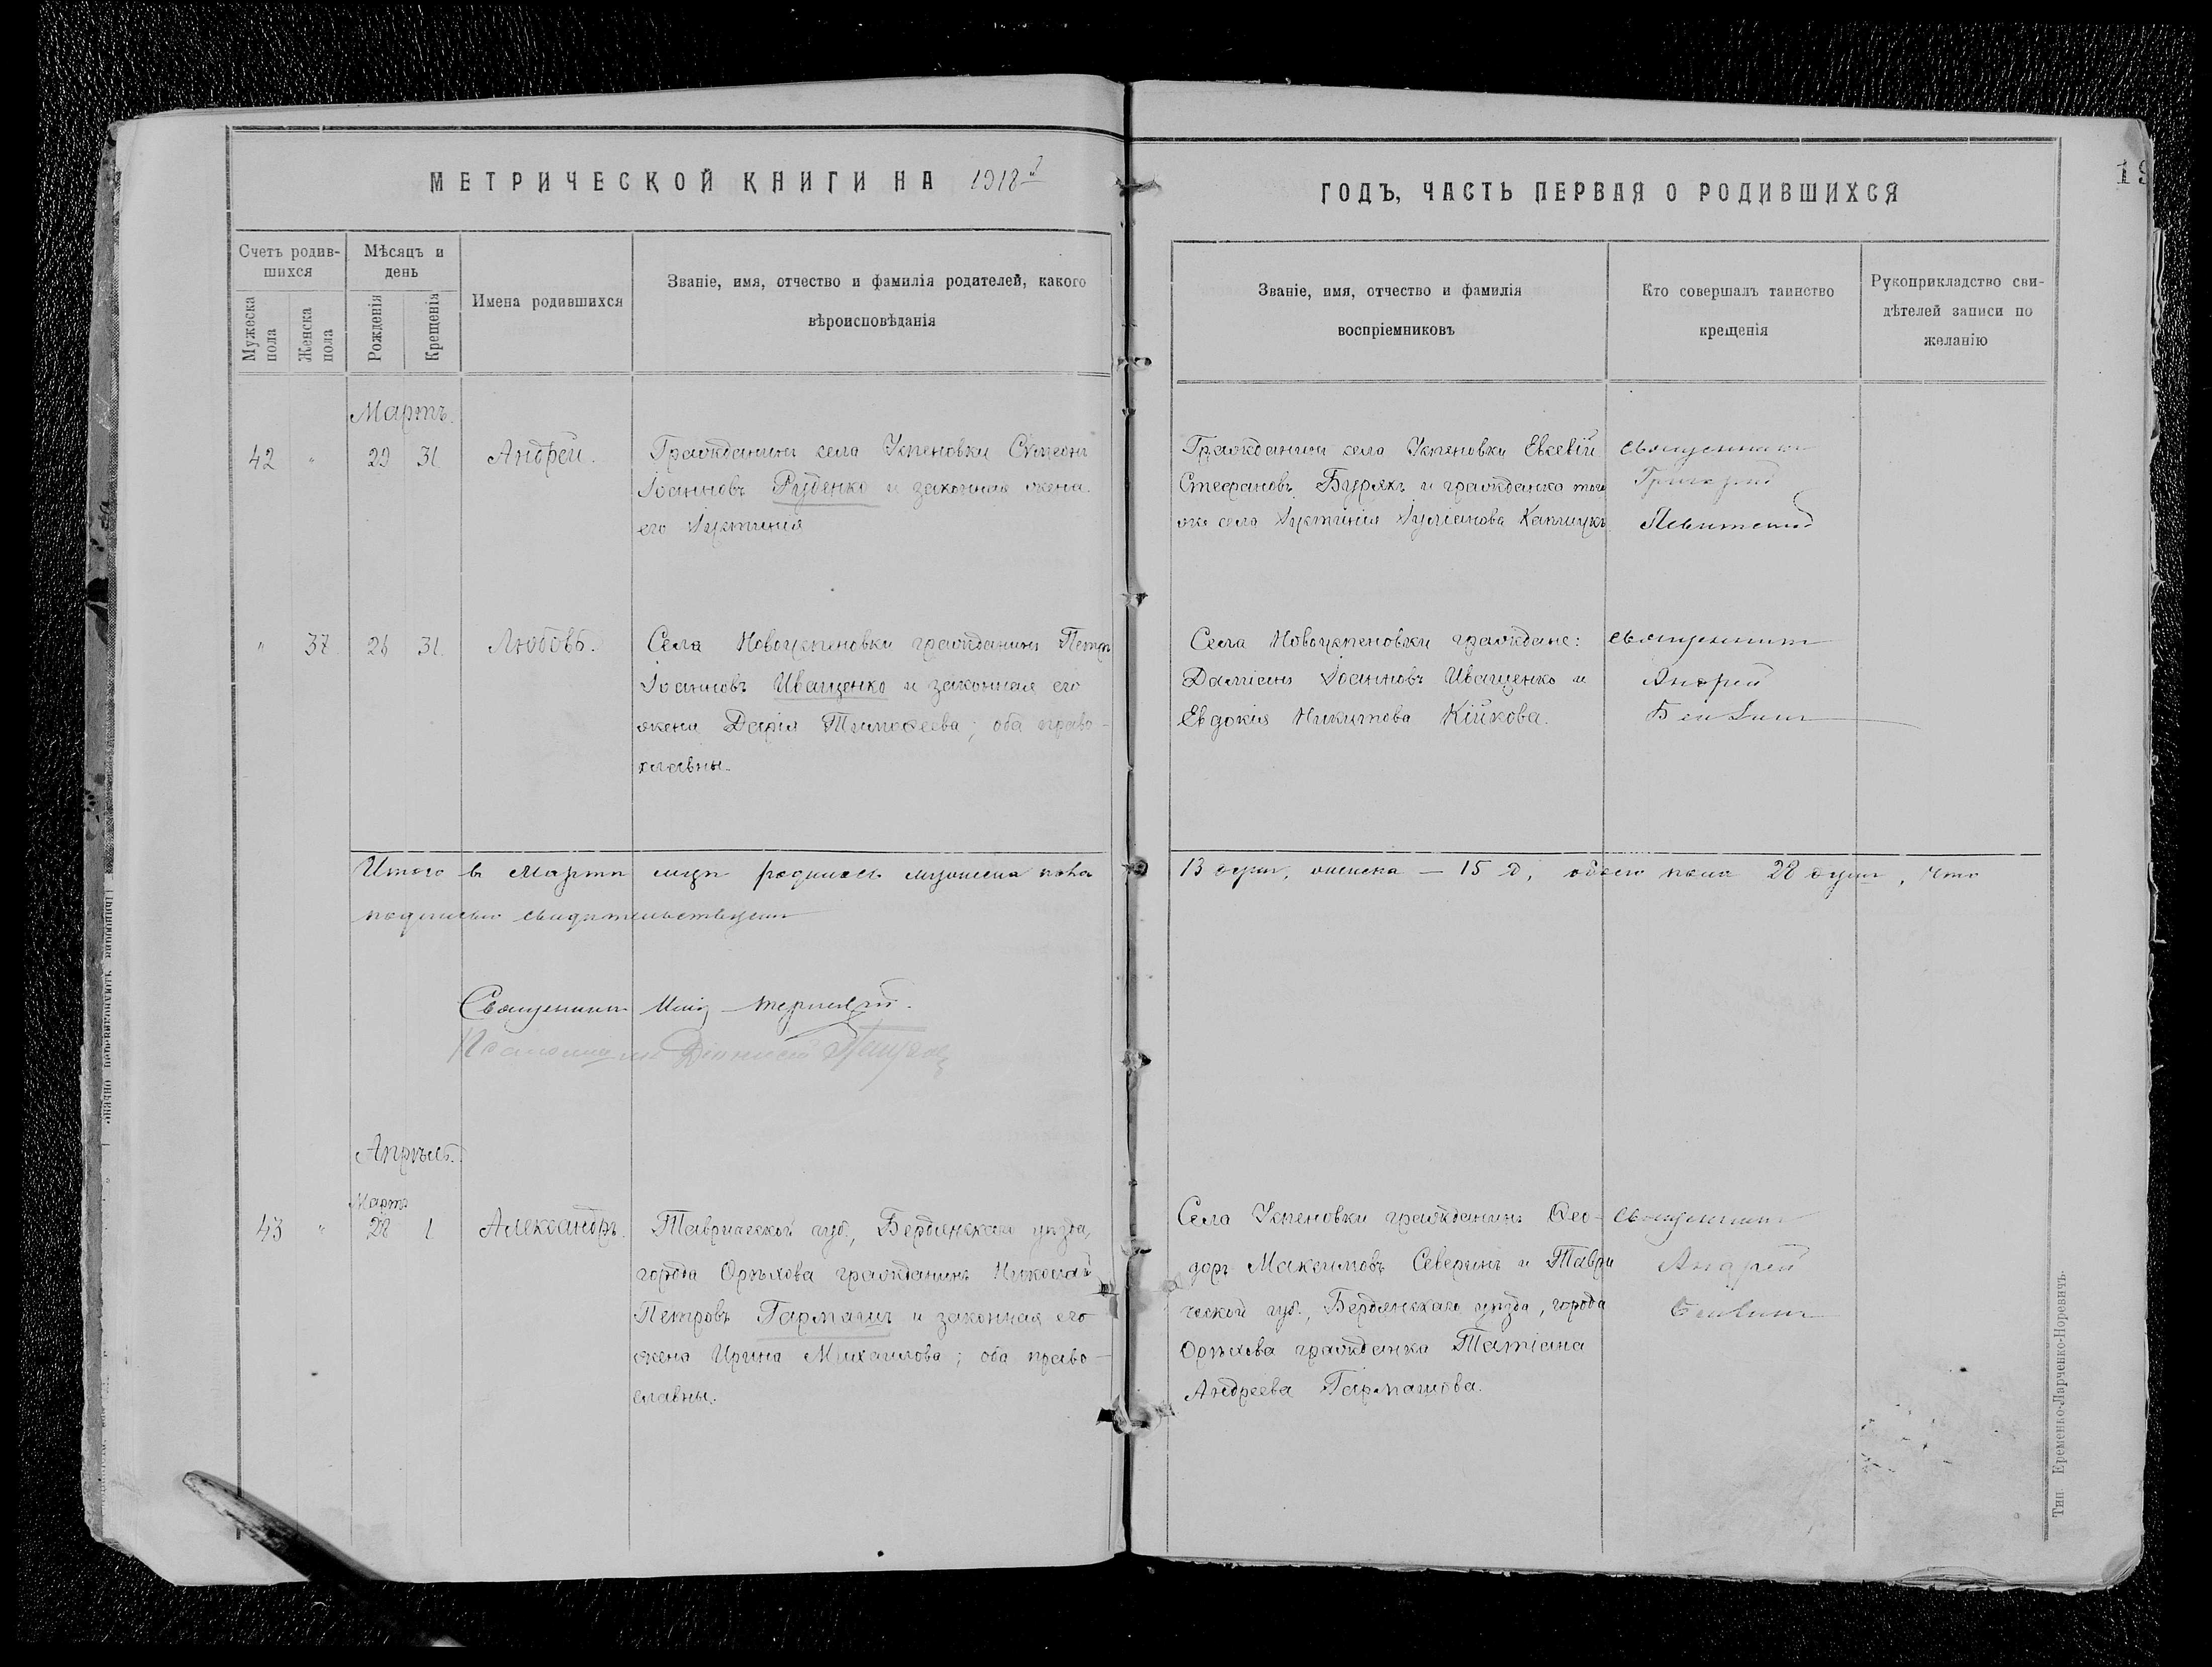 МЕТРИЧЕСКОЙ КНИГИ НА 1918й
Счетъ родив-
шихся
Мѣсяцъ и
день
Имена родившихся
Званіе, имя, отчество и фамилія родителей, какого
вѣроисповѣданія
Мужеска
пола
Женска
пола
Рожденія
Крещенія
Мартъ.
42 " 29 31 Андрей.
Гражданинъ села Успеновки Симеонъ
Іоанновъ Руденко и законная жена
его Іустинія
" 37. 26 31. Любовь.
Села Новоуспеновки гражданинъ Петръ
Іоанновъ Иващенко и законная его
жена Дарія Тимофеева; оба право-
славны.
Итого въ Мартѣ родилось мужеска пола
подписью свидѣтельствуемъ
Священникъ
Псаломщикъ Діонисій
Апрѣль.
Мартъ
43 " 28 1 Александръ.
Таврической губ., Бердянскаго уѣзда,
города Орѣхова гражданинъ Николай
Петровъ Гармашъ и законная его
жена Ирина Михаилова; оба право-
славны.
ГОДЪ, ЧАСТЬ ПЕРВАЯ О РОДИВШИХСЯ
19
Званіе, имя, отчество и фамилія
воспріемниковъ
Кто совершалъ таинство
крещенія
Рукоприкладство сви-
дѣтелей записи по
желанію
Гражданинъ села Успеновки Евсевій
Стефановъ Бурякъ и гражданка того
же села Іустинія Іуліанова
Священникъ
Григорій
Села Новоуспеновки граждане:
Даміанъ Іоанновъ Иващенко и
Евдокія Никитова Кійкова.
Священникъ
Андрей
13 душъ, женска — 15 д., обоего пола 28 душъ, что
Села Успеновки гражданинъ Ѳео-
доръ Максимовъ Северинъ и Таври
ческой губ., Бердянскаго уѣзда, города
Орѣхова гражданка Татіана
Андреева Гармашова.
Священникъ
Андрей
Тип. Еременко-Ларченко-Норевичъ.